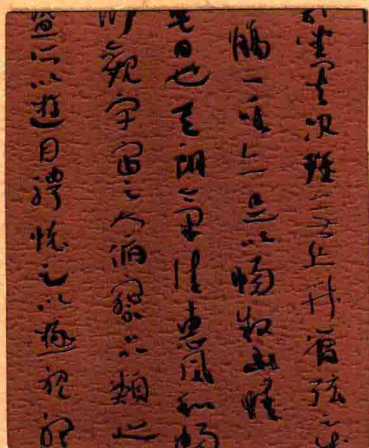 列坐其次雖無絲竹管弦之
觴一詠亦足以暢敘幽情
是日也天朗氣清惠風和暢
仰觀宇宙之大俯察品類之
盛所以遊目騁懷足以極視聽